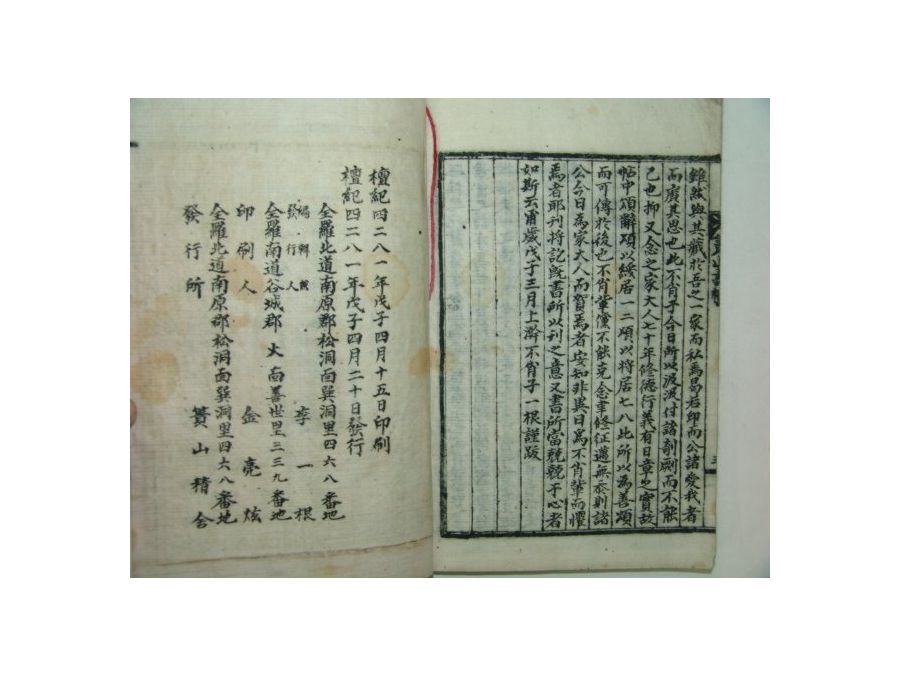 雖然與其藏於吾之一家而私焉曷若印而公諸愛我者
而廣其思也此不肖子今日所以汲汲付諸剞劂而不能
已也抑又念之家大人七十年修德行義有日章之實故
帖中頌辭頌以緩居一二頌以將居七八此所以為善頌
而可傳於後也不肖輩儻不能克念聿修征邁無忝則諸
公今日為家大人而賀焉者安知非異日為不肖輩而懼
焉者耶刊將訖旣書所以刊之意又書所當兢兢于心者
如斯云甭歲戊子三月上澣不肖子一根謹跋
檀紀四二八一年戊子四月十五日印刷
檀紀四二八一年戊子四月二十日發行
全羅北道南原郡松洞面巽洞里四六八番地
編輯兼發行人 李一根
全羅南道谷城郡火面善世里三三九番地
印刷人 金亮炫
全羅北道南原郡松洞面巽洞里四六八番地
發行所 簣山精舍